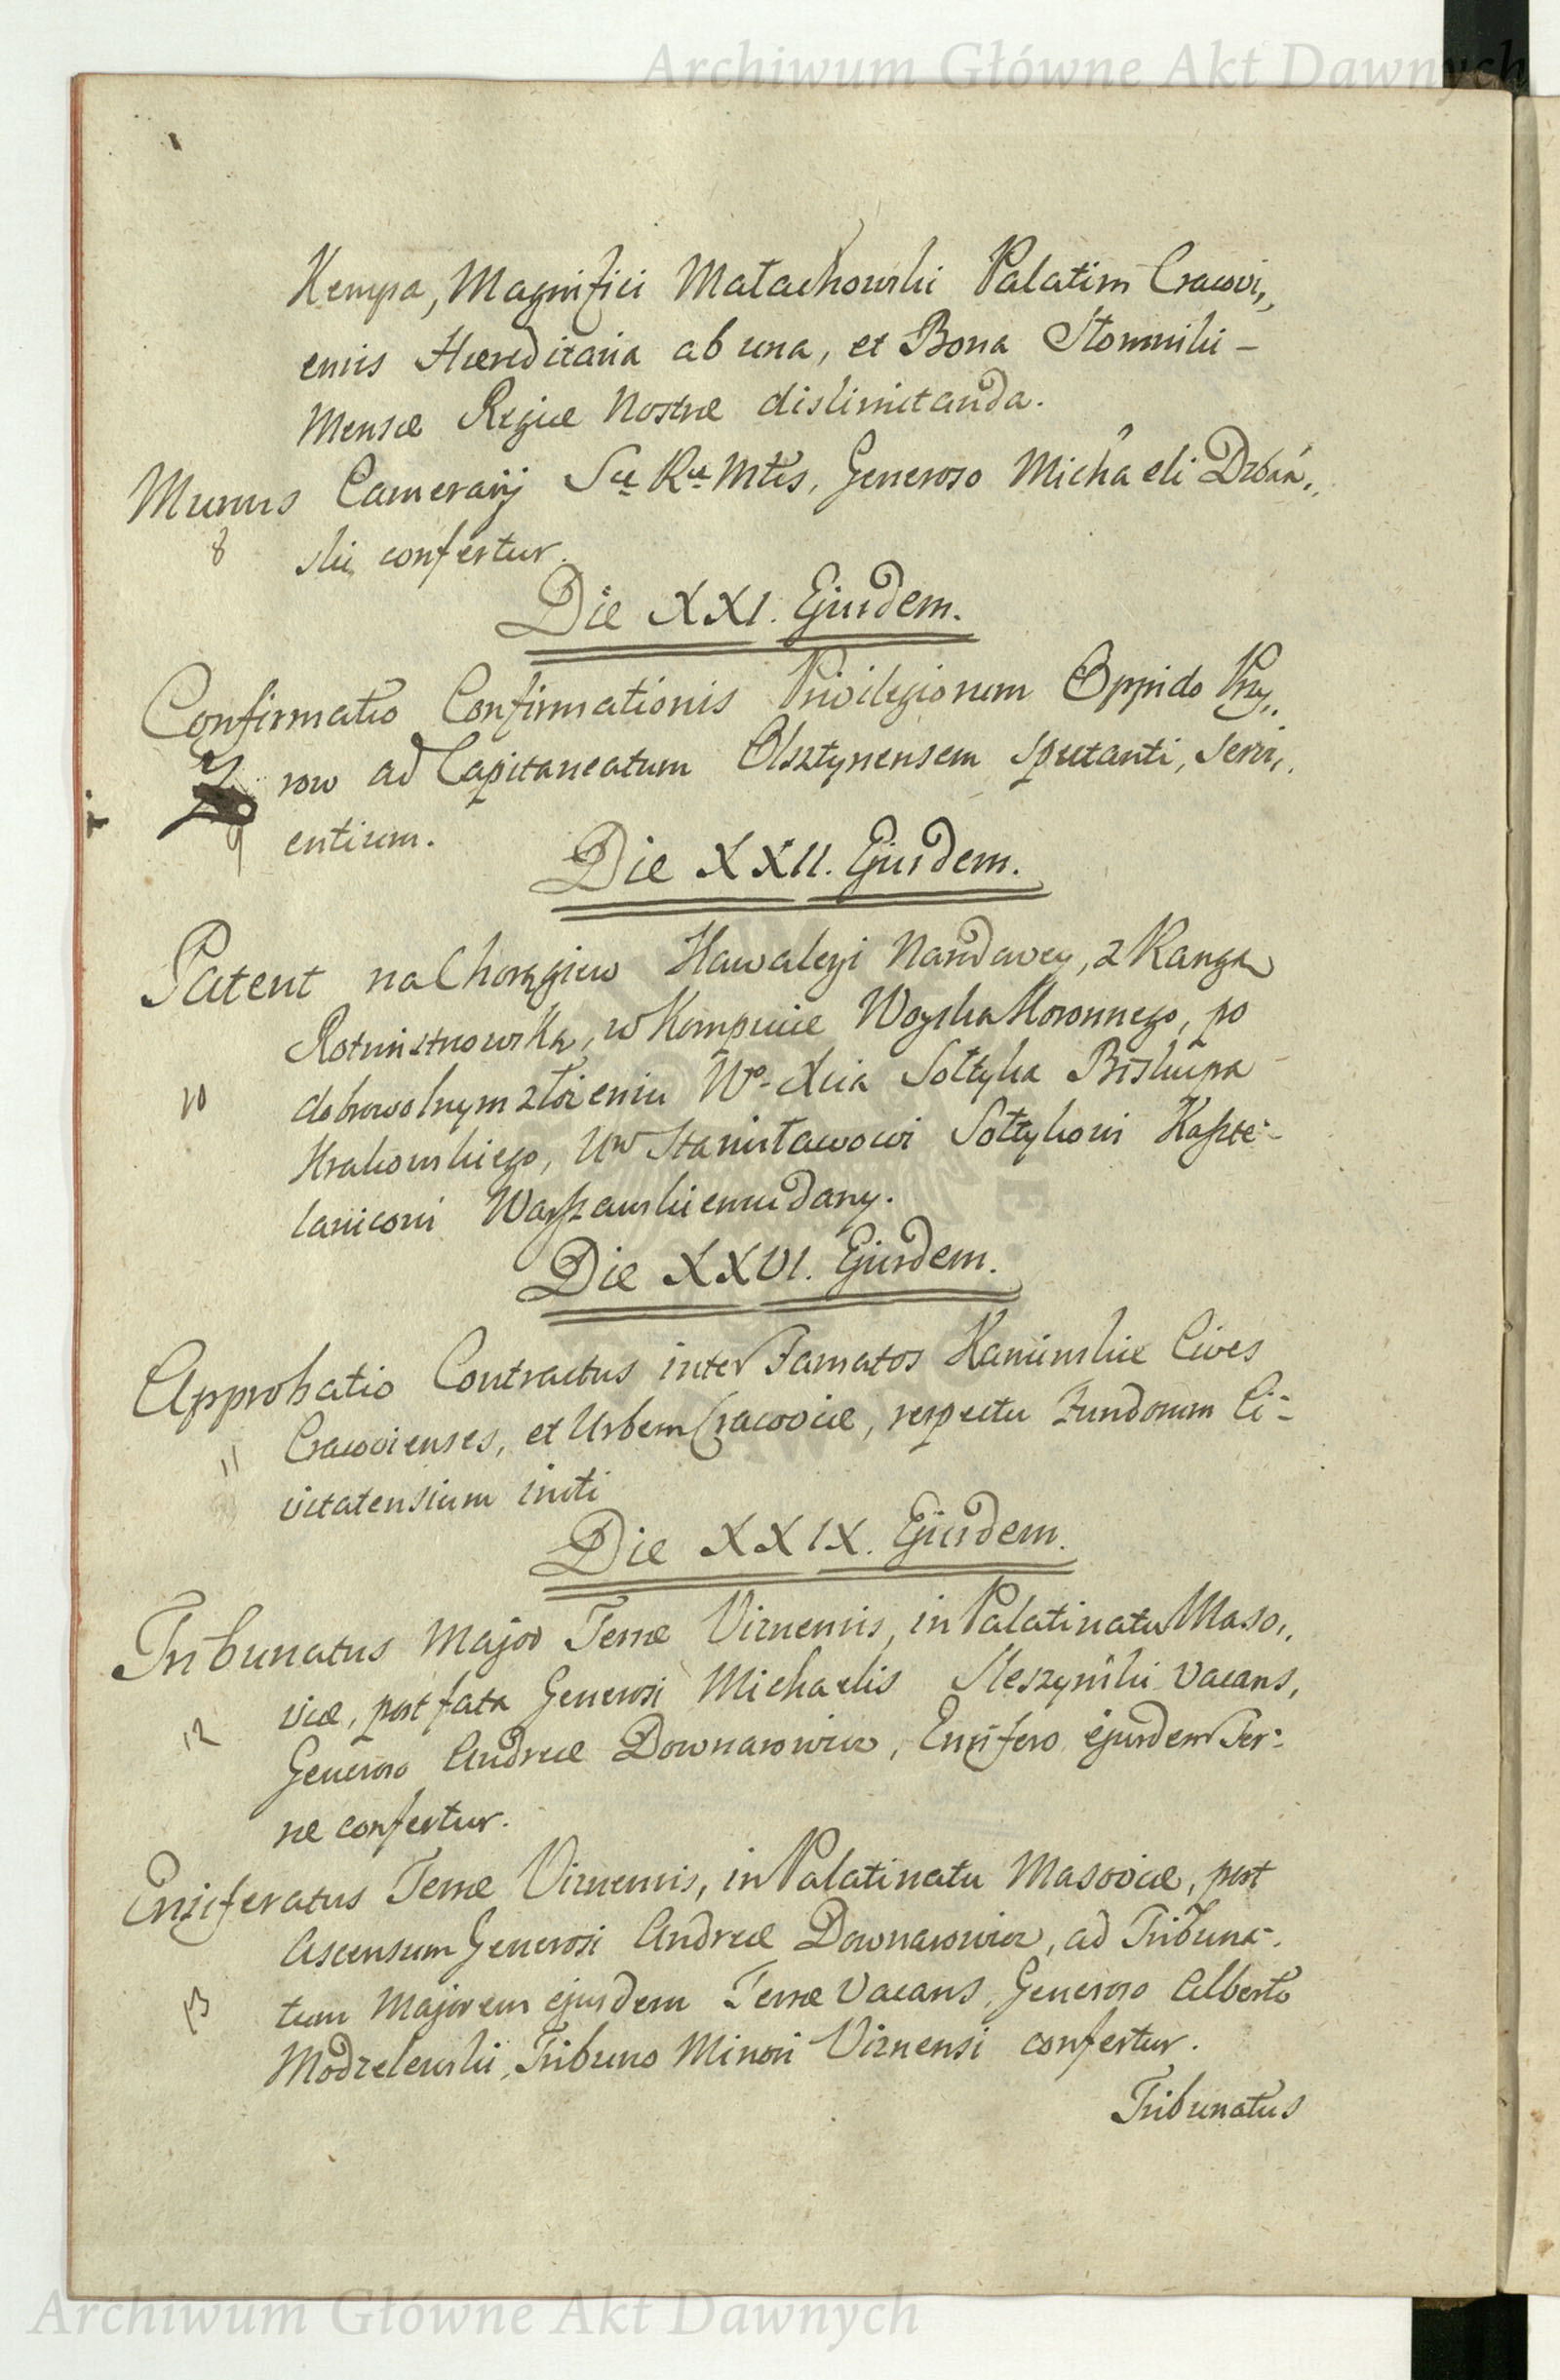 Archiwum Główne Akt Dawnych
Kempa, Magnifici Małachowski Palatini Cracovi„
ensis Hæreditaria ab una, et Bona Słomniki –
Mensæ Regiæ Nostræ dislimitanda.
Munus Camerarij Sæ Ræ Mtis, Generoso Michaeli Dzbań„
8 ski confertur.
Die XXI. Ejusdem.
Confirmatio Confirmationis Privilegiorum Oppido Przy„
row ad Capitaneatum Olsztynensem spectanti, servi„
9 entium.
Die XXII. Ejusdem.
Patent na Chorągiew Kawaleryi Narodowey, z Rangą
Rotmistrzowską, w Kompucie Woyska Koronnego, po
10 dobrowolnym złożeniu Wo Xcia Sołtyka Biskupa
Krakowskiego, Ur Stanisławowi Sołtykowi Kaszte-
lanicowi Warszawskiemu dany.
Die XXVI. Ejusdem.
Approbatio Contractus inter Famatos Kamińskie Cives
11 Cracovienses, et Urbem Cracoviæ, respectu Fundorum Ci-
vitatensium initi
Die XXIX. Ejusdem.
Tribunatus Major Terræ Viznensis, in Palatinatu Maso„
viæ, post fata Generosi Michaelis Kleszyński vacans,
12 Generoso Andreæ Downarowicz, Ensifero ejusdem Ter-
ræ confertur.
Ensiferatus Terræ Viznensis, in Palatinatu Masoviæ, post
Ascensum Generosi Andreæ Downarowicz, ad Tribuna-
13 tum Majorem ejusdem Terræ Vacans, Generoso Alberto
Modzelewski, Tribuno Minori Viznensi confertur.
Tribunatus
Archiwum Główne Akt Dawnych